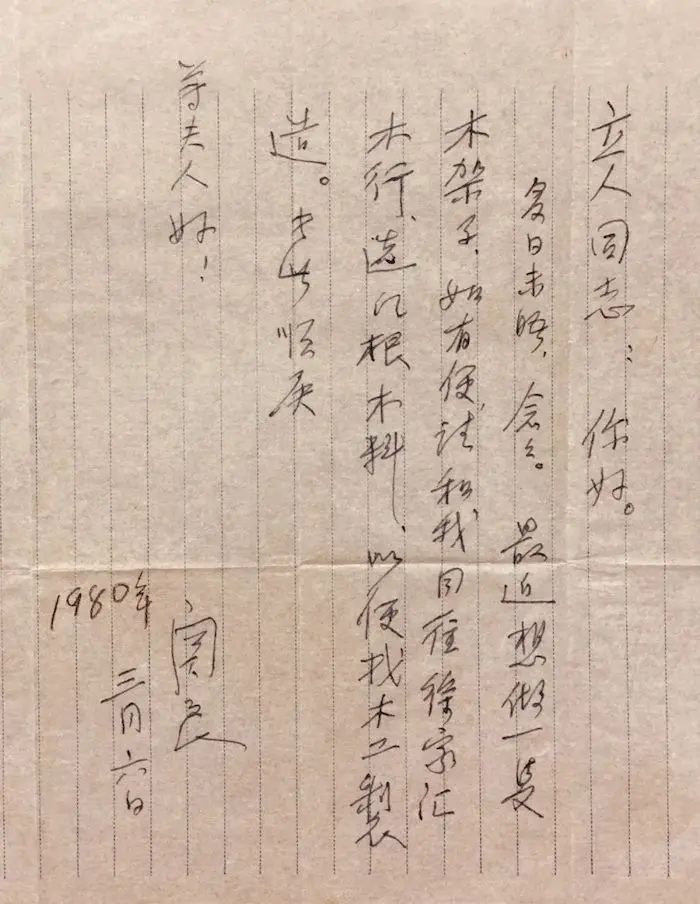 立人同志：你好。
多日未晤，念之。最近想做一隻
木架子，如有便，请和我同往徐家汇
木行，选几根木料，以便找木工製
造。专此顺庆
尊夫人好！
関良
1980年
三月六日